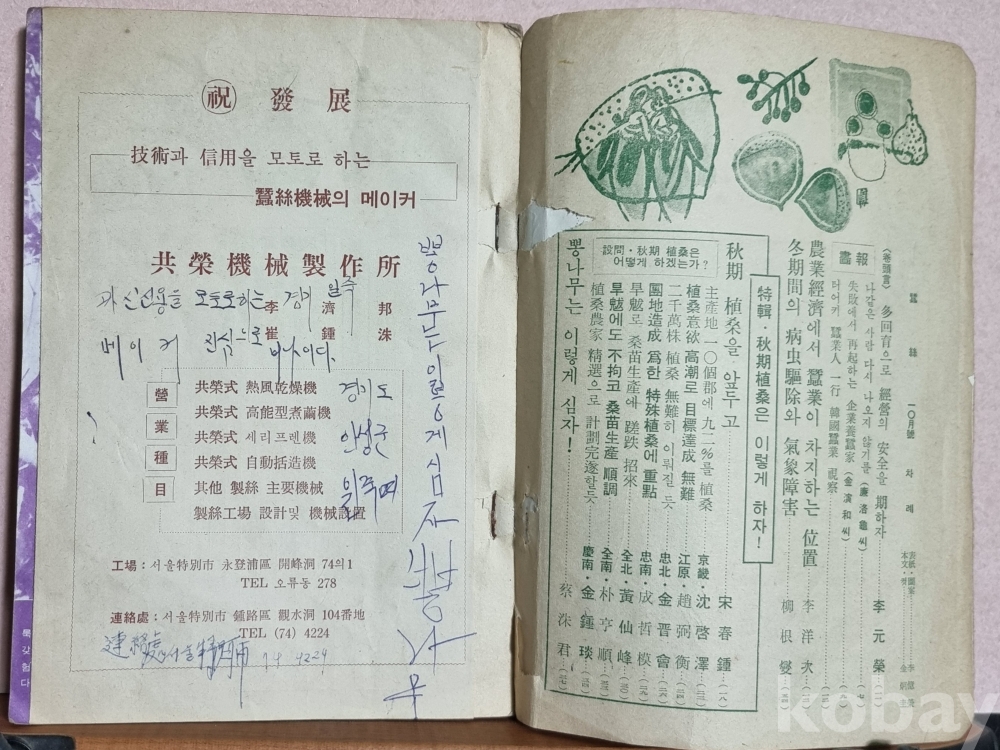 祝 發展
技術과 信用을 모토로 하는
蠶絲機械의 메이커
共榮機械製作所
李濟邦
崔鍾洙
과 신용을 모토로하는 경기 일죽
메이커 진심으로
營業種目
共榮式 熱風乾燥機
共榮式 高能型煮繭機
共榮式 세리프렌機
共榮式 自動括造機
其他 製絲 主要機械
製絲工場 設計및 機械設置
경기도
안성군
일죽면
뽕나무는 이렇게 심자
뽕나무
工場：서울特別市 永登浦區 開峰洞 74의1
TEL 오류동 278
連絡處：서울特別市 鍾路區 觀水洞 104番地
TEL (74) 4224
連絡處 서울特 74 4224
蠶絲 一〇月號 차례
〈卷頭言〉 多回育으로 經營의 安全을 期하자 李元榮
畫報
나같은 사람 다시 나오지 않기를 (廉洛龜씨)
失敗에서 再起하는 企業養蠶家 (金演和씨)
터어키 蠶業人 一行 韓國蠶業 視察
農業經濟에서 蠶業이 차지하는 位置 李洋次
冬期間의 病虫驅除와 氣象障害 柳根燮
特輯・秋期植桑은 이렇게 하자!
秋期 植桑을 앞두고 宋春鍾
設問・秋期 植桑은 어떻게 하겠는가?
主産地 一〇個郡에 九二%를 植桑 京畿・沈啓澤
植桑意欲 高潮로 目標達成 無難 江原・趙弼衡
二千萬株 植桑 無難히 이뤄질 듯 忠北・金晋會
團地造成 爲한 特殊植桑에 重點 忠南・成哲模
旱魃로 桑苗生産에 蹉跌 招來 全北・黃仙峰
旱魃에도 不拘코 桑苗生産 順調 全南・朴亨順
植桑農家 精選으로 計劃完遂할듯 慶南・金鍾琰
뽕나무는 이렇게 심자! 蔡洙君
kobay